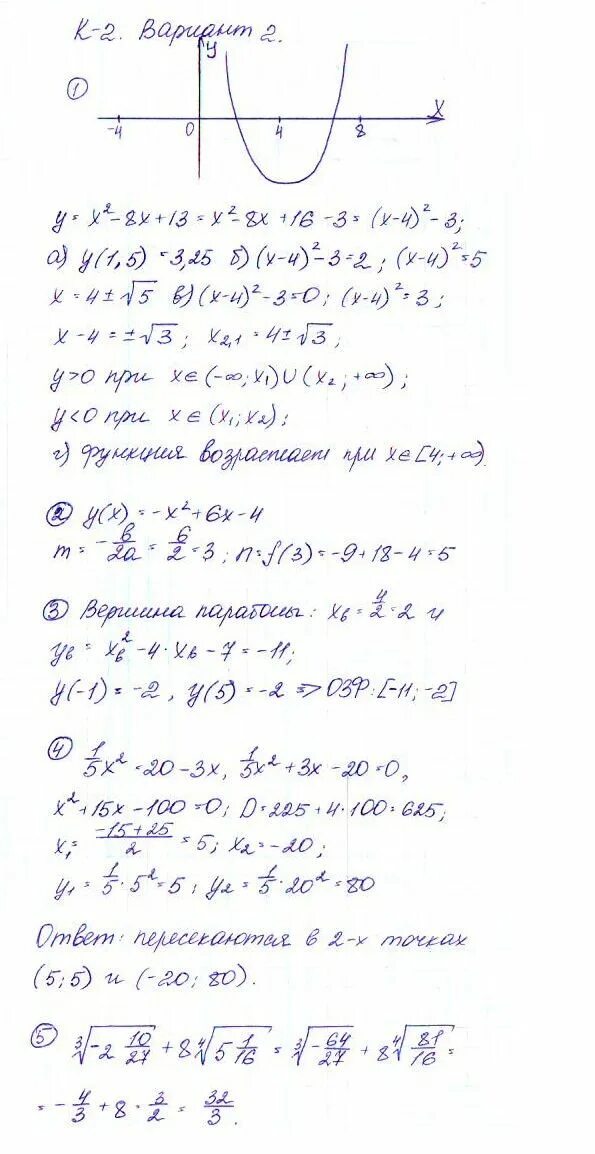 К-2. Вариант 2.
у
①
х
-4 0 4 8
y = x² - 8x + 13 = x² - 8x + 16 - 3 = (x-4)² - 3;
а) y(1,5) = 3,25 б) (x-4)² - 3 = 2; (x-4)² = 5
x = 4 ± √5 в) (x-4)² - 3 = 0; (x-4)² = 3;
x - 4 = ±√3; x₂,₁ = 4 ± √3;
y > 0 при x ∈ (-∞; x₁) ∪ (x₂; +∞);
y < 0 при x ∈ (x₁; x₂);
г) функция возрастает при x ∈ [4; +∞)
② y(x) = -x² + 6x - 4
m = -b/2a = 6/2 = 3; n = f(3) = -9 + 18 - 4 = 5
③ Вершина параболы: xв = 4/2 = 2 и
yв = xв² - 4·xв - 7 = -11;
y(-1) = -2, y(5) = -2 => ОЗФ: [-11; -2]
④ 1/5x² = 20 - 3x, 1/5x² + 3x - 20 = 0,
x² + 15x - 100 = 0; D = 225 + 4·100 = 625;
x₁ = (-15+25)/2 = 5; x₂ = -20;
y₁ = 1/5·5² = 5; y₂ = 1/5·20² = 80
Ответ: пересекаются в 2-х точках
(5; 5) и (-20; 80).
⑤ ∛(-2 10/27) + 8∜(5 1/16) = ∛(-64/27) + 8∜(81/16) =
= -4/3 + 8·3/2 = 32/3.